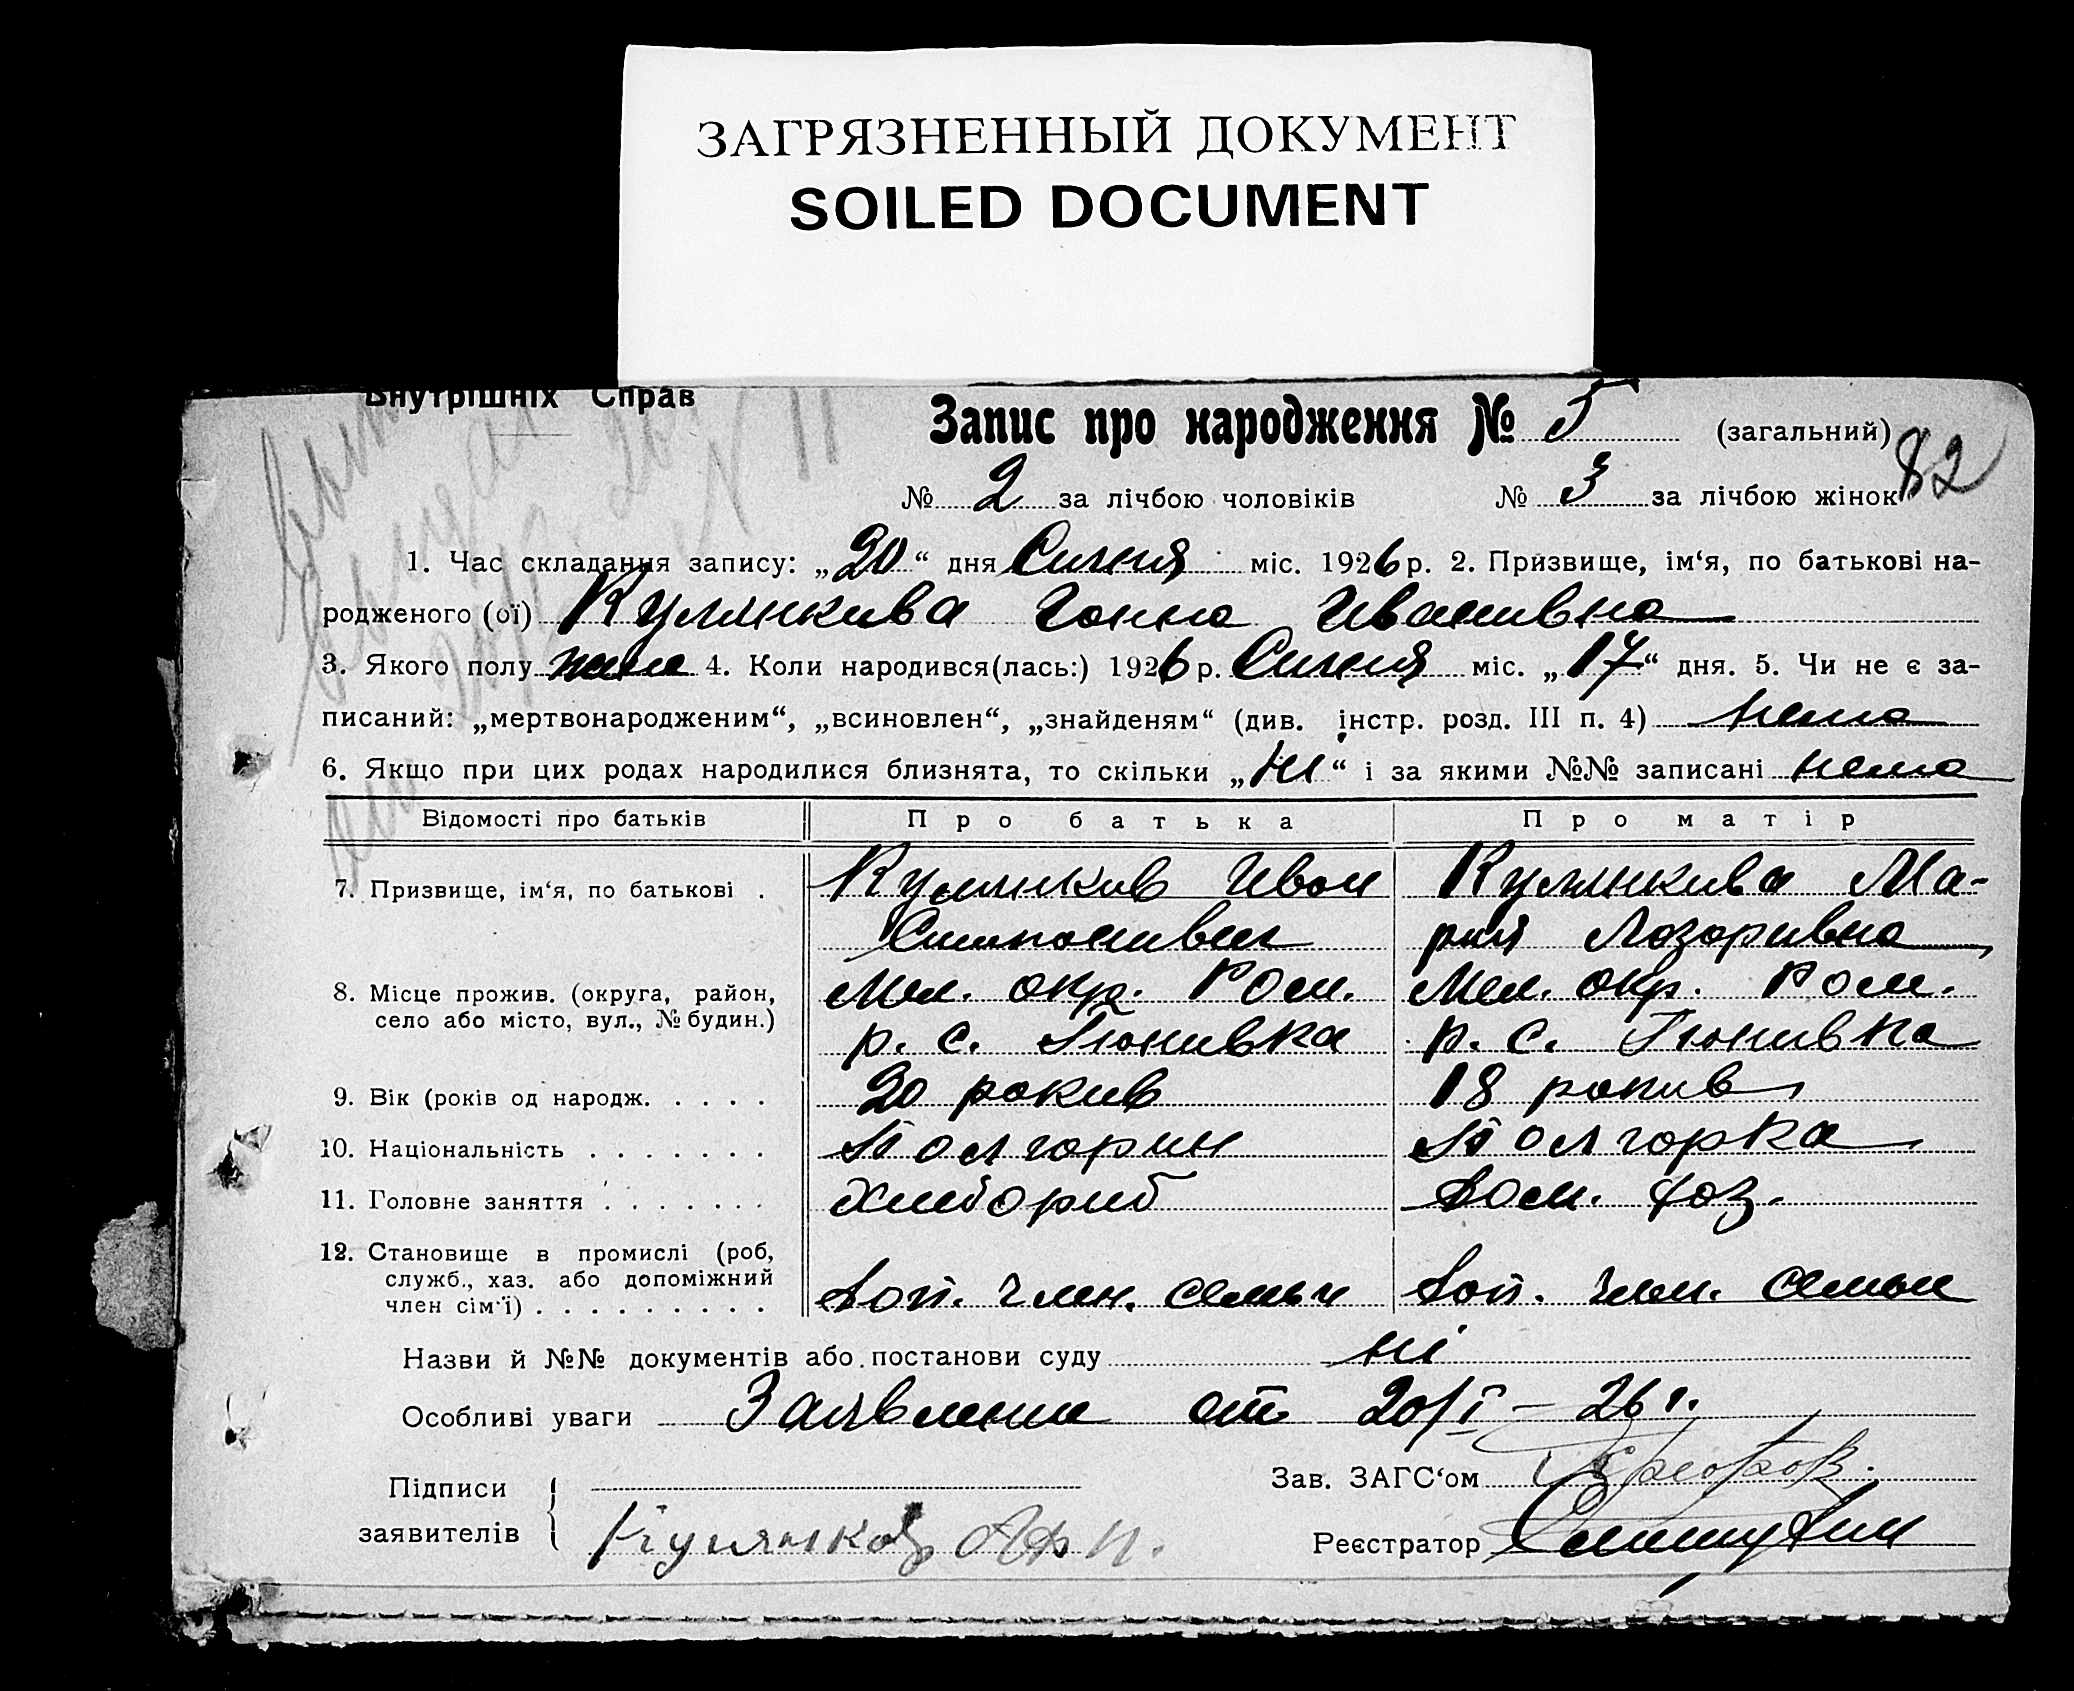 ЗАГРЯЗНЕННЫЙ ДОКУМЕНТ
SOILED DOCUMENT
Внутрішніх Справ
Запис про народження № 5 (загальний)
82
№ 2 за лічбою чоловіків № 3 за лічбою жінок
1. Час складання запису: „20“ дня Сичня міс. 1926 р. 2. Призвище, ім‘я, по батькові на-
родженого (ої) Кулинкива Ганна Иванивна
3. Якого полу 4. Коли народився(лась:) 1926 р. Сичня міс. „17“ дня. 5. Чи не є за-
писаний: „мертвонародженим“, „всиновлен“, „знайденям“ (див. інстр. розд. III п. 4) нема
6. Якщо при цих родах народилися близнята, то скільки „Ні“ і за якими №№ записані нема
Відомості про батьків Про батька Про матір
7. Призвище, ім‘я, по батькові . Кулинкив Иван Кулинкива Ма-
рия Лазоривна
8. Місце прожив. (округа, район, Мел. окр. Ром. Мел. окр. Ром.
село або місто, вул., № будин.) р. с. Гюнивка р. с. Гюнивка
9. Вік (років од народж. . . . . 20 рокив 18 рокив
10. Національність . . . . . . . Болгорин Болгорка
11. Головне заняття . . . . . . . Хлибориб Дом. хоз.
12. Становище в промислі (роб,
служб., хаз. або допоміжний
член сім‘ї) . . . . . . . . . Доп. член. семьи Доп. член. семьи
Назви й №№ документів або постанови суду ні
Особливі уваги Заявление от 20/I – 26 г.
Підписи Зав. ЗАГС‘ом
заявителів
Реєстратор